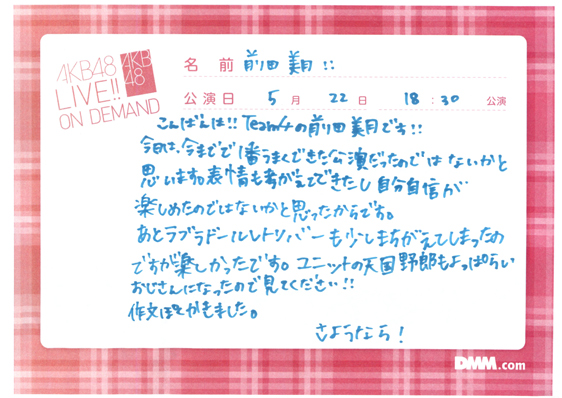 AKB48
LIVE!!
ON DEMAND
AKB
48
名前 前田 美月!!
公演日 5月 22日 18:30 公演
こんばんは!! Team4の前田美月です!!
今日は、今までで1番うまくできた公演だったのではないかと
思います。表情も考がえてできたし自分自信が
楽しめたのではないかと思ったからです。
あとラブラドールレトリバーも少しまちがえてしまったの
ですが楽しかったです。ユニットの天国野郎もよっぱらい
おじさんになったので見てください!!
作文ぽくかきました。
さようなら!
DMM.com